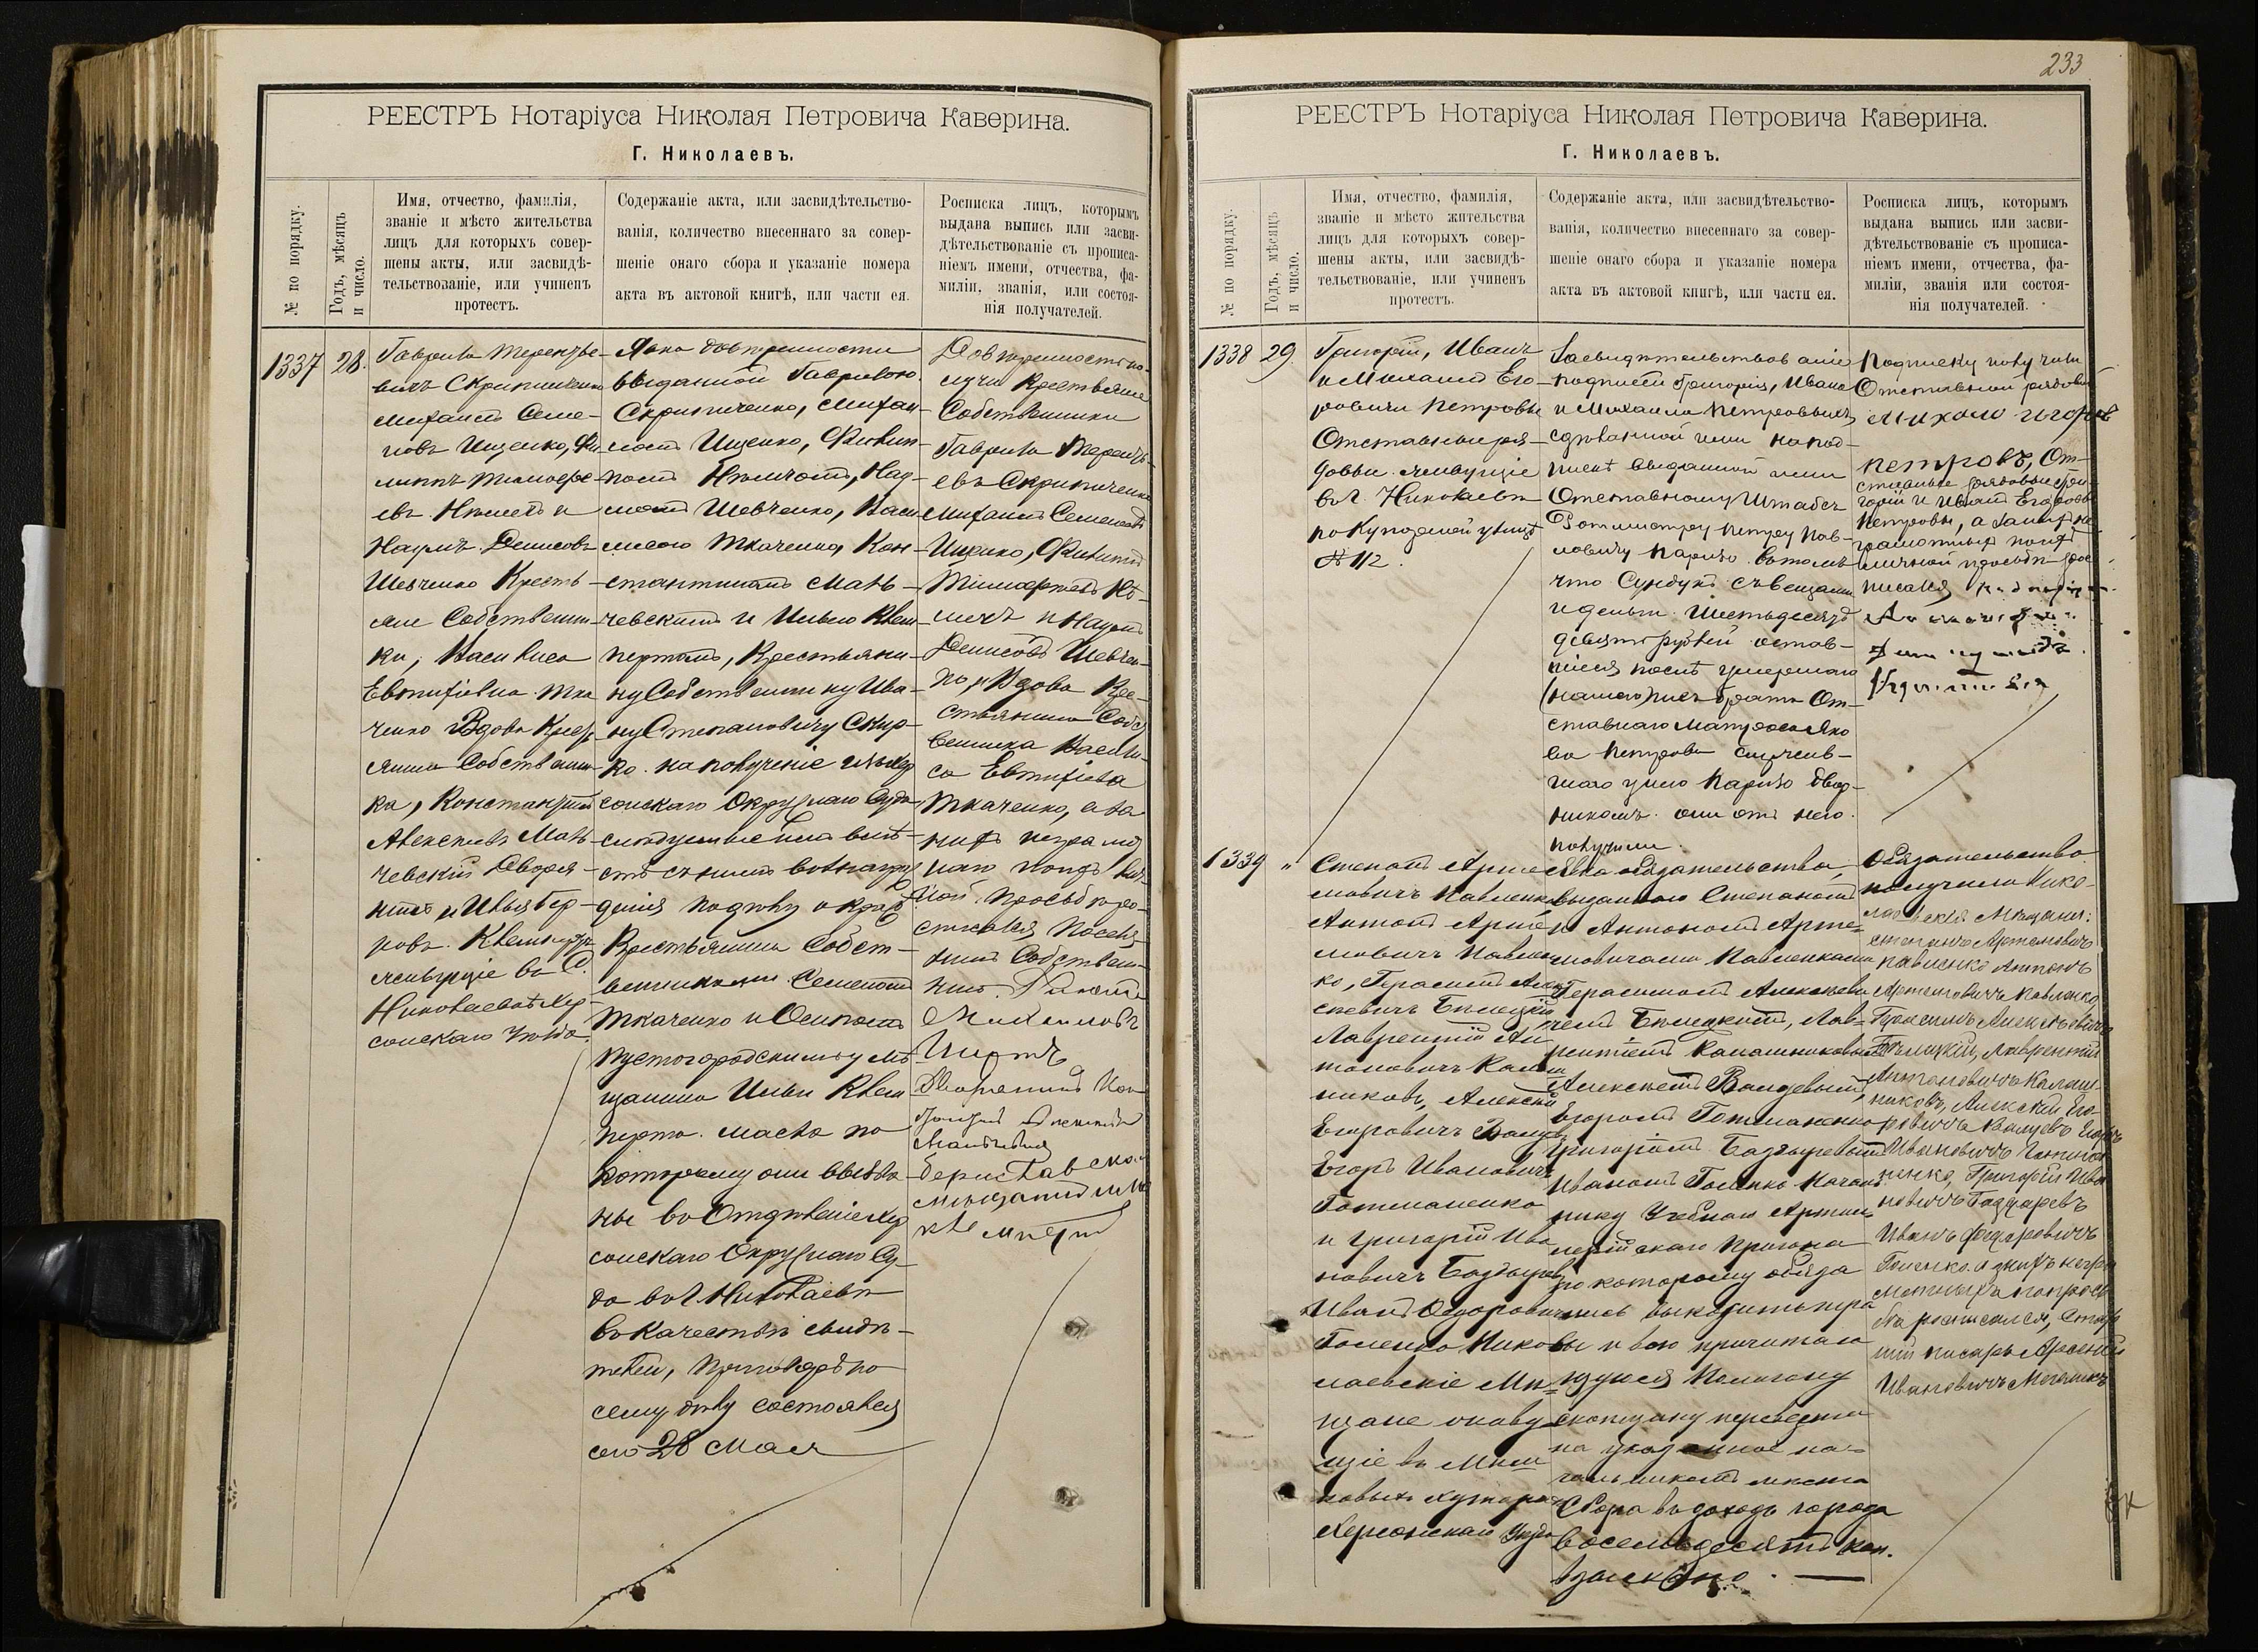 РЕЕСТРЪ Нотаріуса Николая Петровича Каверина.
Г. Николаевъ.
№ по порядку.
Годъ, мѣсяцъ
и число.
Имя, отчество, фамилія,
званіе и мѣсто жительства
лицъ для которыхъ совер-
шены акты, или засвидѣ-
тельствованіе, или учиненъ
протестъ.
Содержаніе акта, или засвидѣтельство-
ванія, количество внесеннаго за совер-
шеніе онаго сбора и указаніе номера
акта въ актовой книгѣ, или части ея.
Росписка лицъ, которымъ
выдана выпись или засви-
дѣтельствованіе съ прописа-
ніемъ имени, отчества, фа-
миліи, званія, или состоя-
нія получателей.
1337
28.
Гаврило Терентье-
вичъ Скрипниченко
Михаилъ Семе-
новъ Ищенко, Фи
липпъ Тимофе-
евъ Нѣмечъ и
Наумъ Денисовъ
Шевченко Кресть-
яне Собственни-
ки, Василиса
Евтифіевна Тка
ченко Вдова Крест
янина Собственни-
ка, Константинъ
Алексѣевъ Мань
чевскій Дворя-
нинъ и Илья Бер-
ровъ
живущіе въ
Николаевѣ Хер-
сонскаго Уѣзда.
Явка довѣренности
выданной Гавриломъ
Скрипниченко, Михаи-
ломъ Ищенко, Филип-
помъ Нѣмичомъ, Нау-
момъ Шевченко, Васи
лисою Ткаченко, Кон-
стантиномъ Мань-
чевскимъ и Ильею Квем
пертомъ, Крестьяни-
ну Собственнику Ива-
ну Степановичу Скир-
ко на полученіе изъ Хер
сонскаго Окружнаго Суда
слѣдуемые имъ вмѣ-
стѣ съ нимъ вознаграж
денія по дѣлу о кражѣ
Крестьяниномъ Собст-
венникомъ Семеномъ
Ткаченко и Осипомъ
Пустогородскимъ у мѣ
щанина Ильи Квем
перта масла по
которому они вызва
ны въ Отдѣленіе Хер
сонскаго Окружнаго Су-
да въ г. Николаевѣ
въ качествѣ свидѣ-
телей, приговоръ по
сему дѣлу состоялся
сего 28 Мая
Довѣренность по-
лучи Крестьяне
Собственники
Гаврило Терентъ-
евъ Скрипниченко
Михаилъ Семеновъ
Ищенко, Филиппъ
Тимофеевъ Нѣ-
мечъ и Наумъ
Денисовъ Шевчен-
ко, и Вдова Кре-
стьянина Собст
венника Васили-
са Евтифіева
Ткаченко, а за
нихъ неграмот
наго ихъ лич-
ной просьбѣ ро-
списался Поселя-
нинъ Собствен-
никъ
Михаиловъ
Дворянинъ Кон
Алексеевъ
Манчевскій
бериславской
мѣщанинъ Илья
Квемпертъ
233
РЕЕСТРЪ Нотаріуса Николая Петровича Каверина.
Г. Николаевъ.
№ по порядку.
Годъ, мѣсяцъ
и число.
Имя, отчество, фамилія,
званіе и мѣсто жительства
лицъ для которыхъ совер-
шены акты, или засвидѣ-
тельствованіе, или учиненъ
протестъ.
Содержаніе акта, или засвидѣтельство-
ванія, количество внесеннаго за совер-
шеніе онаго сбора и указаніе номера
акта въ актовой книгѣ, или части ея.
Росписка лицъ, которымъ
выдана выпись или засви-
дѣтельствованіе съ прописа-
ніемъ имени, отчества, фа-
миліи, званія или состоя-
нія получателей.
1338
29.
Григорій, Иванъ
и Михаилъ Его-
ровичи Петровы
Отставные ря-
довые живущіе
въ г. Николаевѣ
по Купорной улицѣ
№ 112.
Засвидѣтельствованіе
подписи Григорія, Ивана
и Михаила Петровыхъ,
сдѣланной ими на под-
пискѣ выданной ими
Отставному Штабсъ
Ротмистру Петру Пав-
ловичу въ томъ
что Сундукъ съ вещами
и деньги Шестьдесятъ
девять рублей остав-
шіеся послѣ умершаго
нашего брата От-
ставнаго Матроса Яко
ва Петрова служив-
шаго у него двор-
никомъ они отъ него
получили.
Подписку получили
Отставной рядовой
Михаило Егоровъ
Петровъ, От-
ставные рядовые Гри-
горій и Иванъ Егоровы
Петровы, а за нихъ не
грамотныхъ по ихъ
личной просьбѣ рос
писался
1339
"
Степанъ Арте
мовичъ Павленко
Антонъ Арте
мовичъ Павлен
ко, Герасимъ Алек
сѣевичъ Бѣлецкій
Лаврентій Ан
тоновичъ Калаш
никовъ, Алексѣй
Егоровичъ Валуевъ
Егоръ Ивановичъ
Готманенко
и Григорій Ива
новичъ Бадзыревъ
Иванъ Федоровичъ
Голенко Нико
лаевскіе Мѣ-
щане
щіе въ
новыхъ хуторахъ
Херсонскаго Уѣзда
Явка обязательства,
выданнаго Степаномъ
и Антономъ Арте-
мовичами Павленками
Герасимомъ Алексѣеви
чемъ Бѣлецкимъ, Лав-
рентіемъ Калашниковымъ
Алексѣемъ Валуевымъ,
Егоромъ Готманенко
Григоріемъ Бадзыревымъ
Иваномъ Голенко Началь
нику Учебнаго Артил
лерійскаго Полигона
по которому обяза
лись
скопщину перевезти
на указанное на-
чальникомъ мѣста
Сбора въ доходъ города
восемьдесятъ коп.
взыскано.
Обязательство
получили Нико-
лаевскія Мѣщани:
степанъ Артемовичъ
Павленко Антонъ
Артемовичъ Павленко,
Герасимъ Алексѣевичъ
Бѣлицкій, Лаврентій
Антоновичъ Калаш-
никовъ, Алексѣй Его-
ровичъ Валуевъ Егоръ
Ивановичъ
Григорій Ива
новичъ
Иванъ Федоровичъ
Голенко а за нихъ негра
мотныхъ по просьбѣ
росписался, Стар
шій писарь Арсеній
Ивановичъ